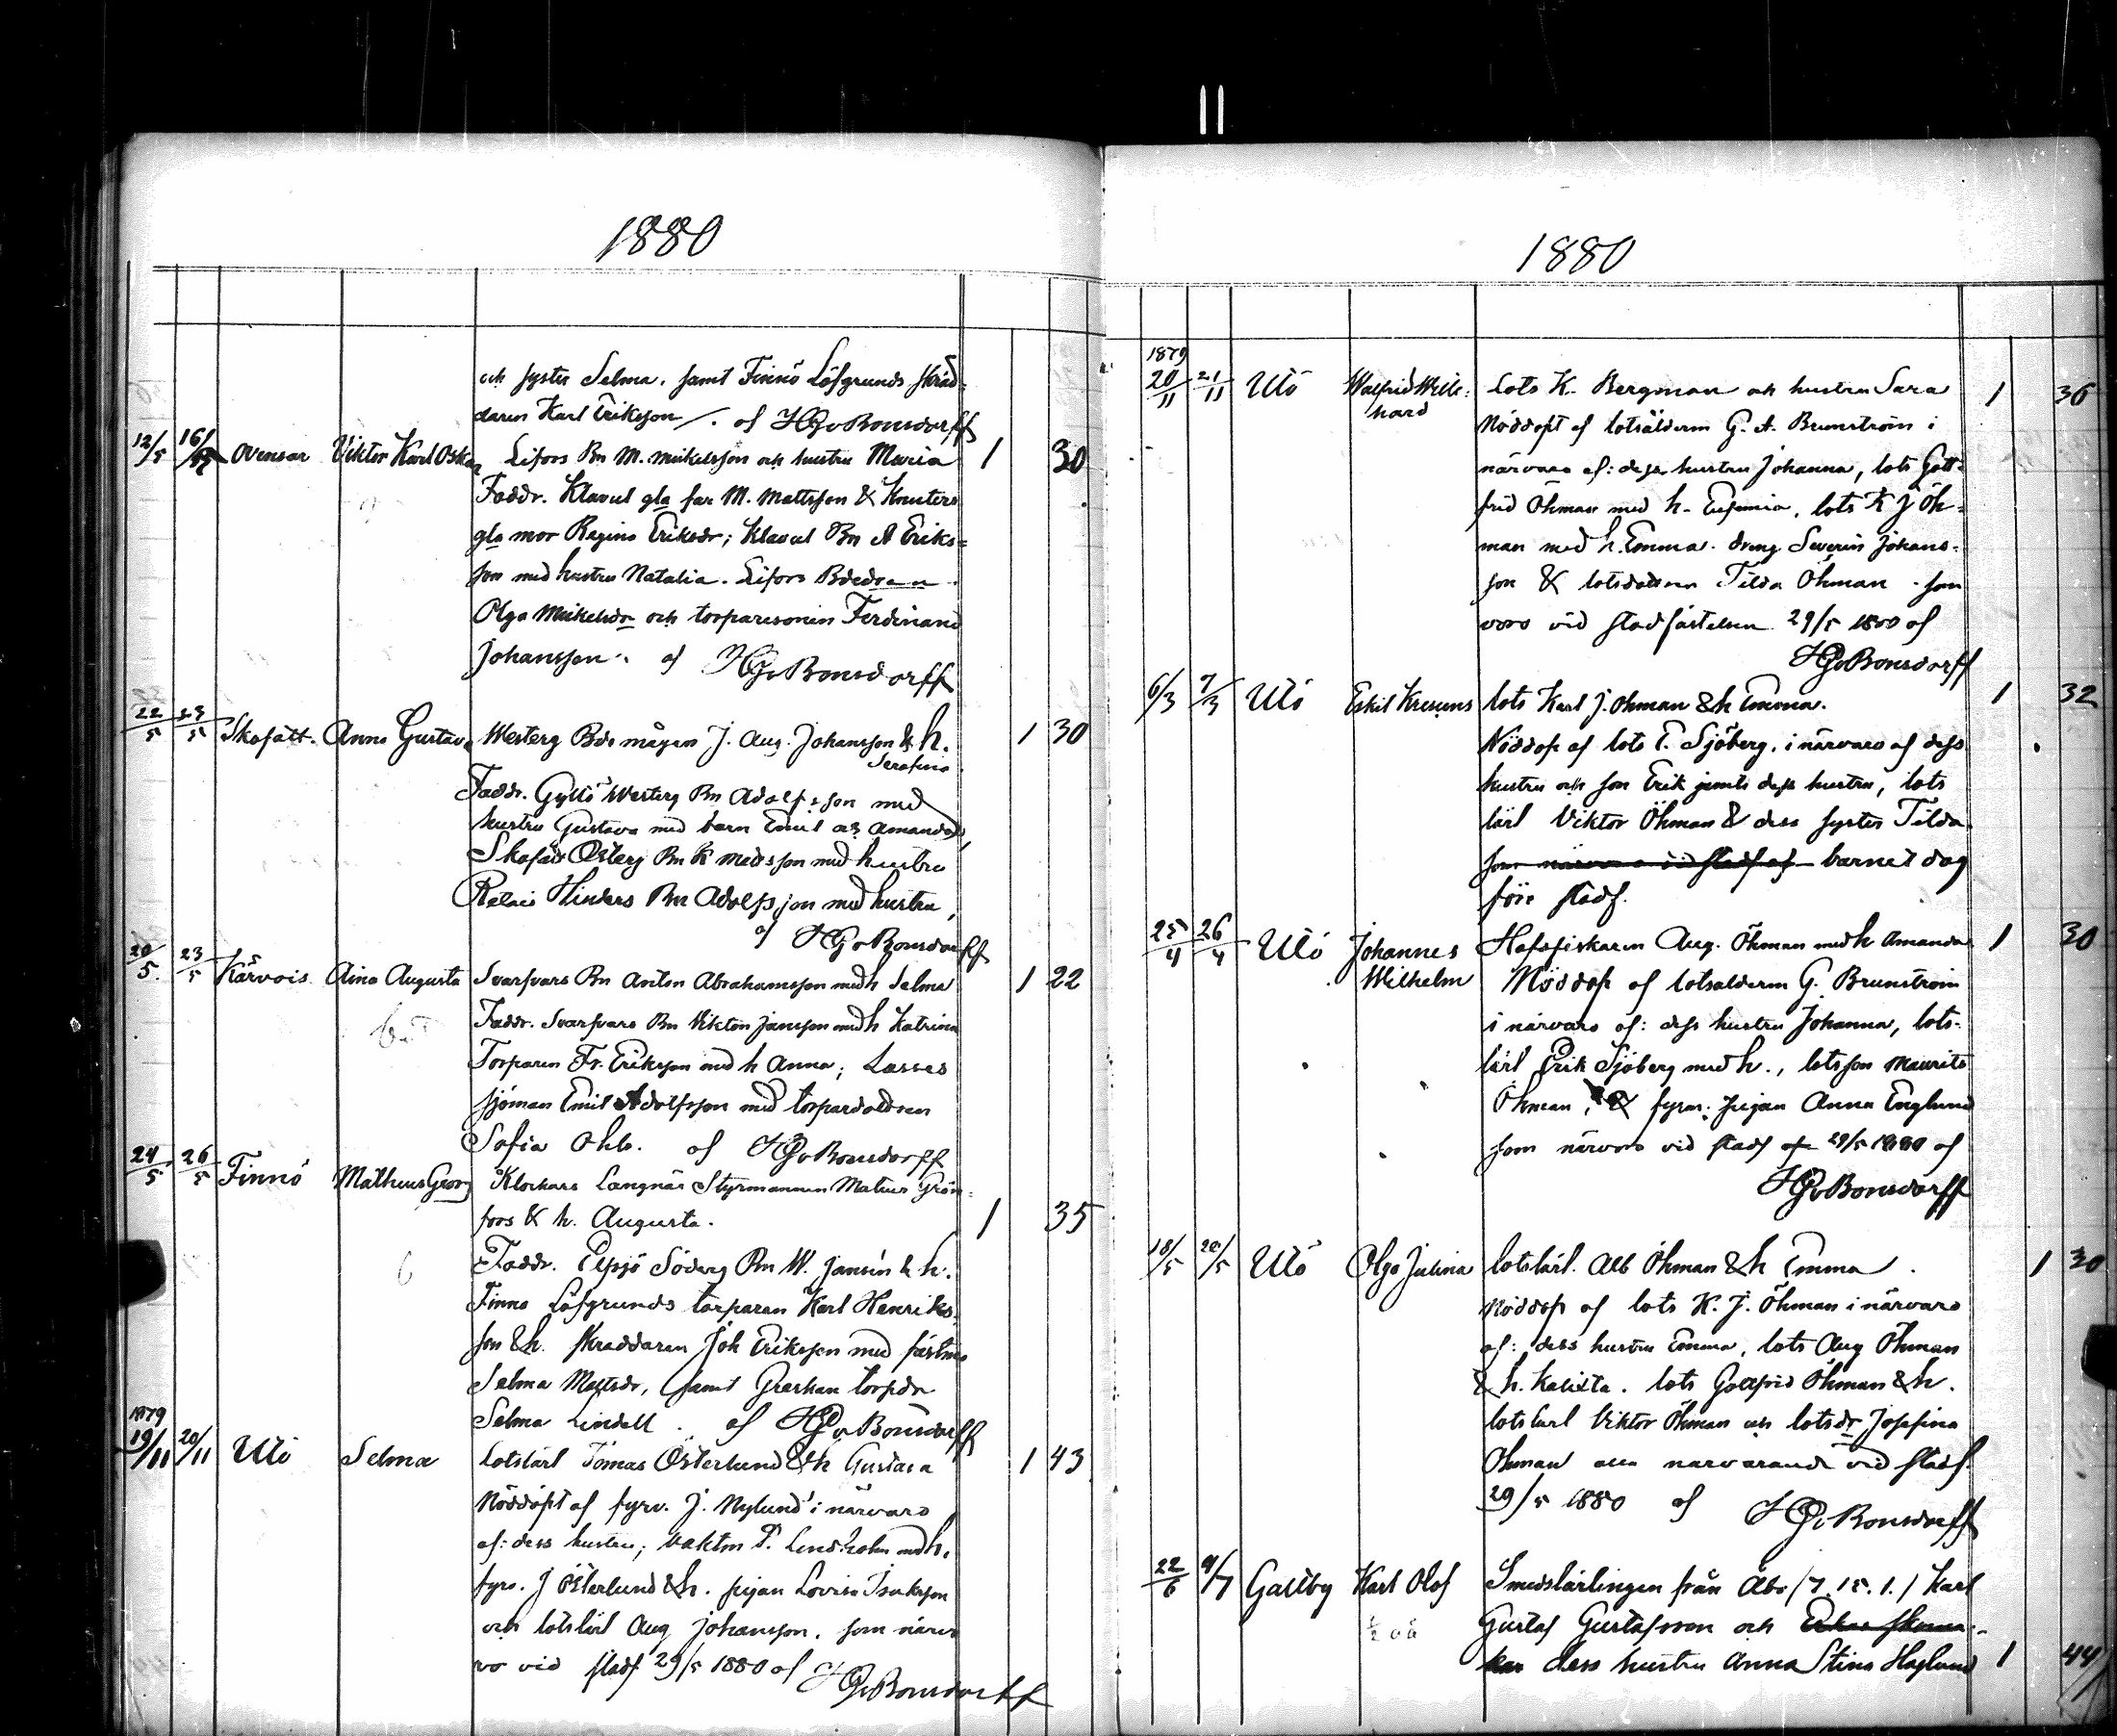 1880
och syster Selma. samt Finnö Löfgrunds skräd-
daren Karl Eriksson. af HGvBonsdorff
12/5 16/5 Avensar Viktor Karl Oskar Lifors Bn M. Mikelsson och hustru Maria 1 30
Faddr. Klavul gla far M. Mattsson & Knuters
gla mor Regina Eriksdr; Klavul Bn A Eriks=
son med hustru Natalia. Lifors
Olga Mikelsdr och torparesonen Ferdinand
Johansson. af HGvBonsdorff
22/5 23/5 Skafätt. Anna Gustava Westerg Bds mågen J. Aug. Johansson & h. 1 30
Serafina
Faddr. Gyttö Westerg Bn Adolfsson med
hustru Gustava med barn Emil och Amanda,
Skafätt Österg Bn K Matsson med hustru
Hinders Bn Adolfsson med hustru,
af HGvBonsdorff
20/5 23/5 Kärvois Aina Augusta Svarfvars Bn Anton Abrahamsson med h Selma 1 22
Faddr. Svarfvars Bn Viktor Jansson med h Katrina
Torparen Fr. Eriksson med h Anna; Lasses
sjöman Emil Adolfsson med torpardottren
Sofia af HGvBonsdorff
24/5 26/5 Finnö Matheus Georg Klockars Langnäs Styrmannen Mateus Grön=
fors & h. Augusta. 1 35
Faddr. Pepjö Söderg Bn W. Jansén & h.
Finnö Löfgrunds torparen Karl Henriks-
son & h. Skräddaren Joh Eriksson med fästmö
Selma Mattsdr, samt Greskan torpdr
Selma Lindell. af HGvBonsdorff
1879
19/11 20/11 Utö Selma Lotslärl Tomas Österlund & h Gustava 1 43
Nöddöpt af fyrv. J. Nylund i närvaro
af: dess hustru; vakten P. Lindholm med h.
fyrv. J Österlund & h. pigan Lovisa Isaksson
och lotslärl Aug Johansson. som närva
ro vid stadf 29/5 1880 af HGvBonsdorff
1880
1879
20/11 21/11 Utö Walfrid Wilk- Lots K. Bergman och hustru Sara 1 36
hard Nöddöpt af lotsåldermn G. A. Brunström i
närvaro af: dess hustru Johanna, lots Gott-
frid Öhman med h. Eufemia, lots K J Öh-
man med h. Emma. dreng Severin Johans-
son & lotsdottren Tilda Öhman som
voro vid stadfästelsen 29/5 1880 af
HGvBonsdorff
6/3 7/3 Utö Eskil Kresens lots Karl J. Öhman & h Emma. 1 32
Nöddöp af lots E. Sjöberg, i närvaro af dess
hustru och son Erik jemte dess hustru, lots
lärl Viktor Öhman & dess syster Tilda
som närvoro vid stadf af barnet dog
före stadf.
25/4 26/4 Utö Johannes Hafsfiskaren Aug. Öhman med h Amanda 1 30
Wilhelm Nöddöp af lotsåldermn G. Brunström
i närvaro af: dess hustru Johanna, lots-
lärl Erik Sjöberg med h., lotsson Maurits
Öhman, & fyrm. pigan Anna Englund
som närvoro vid stadf af 29/5 1880 af
HGvBonsdorff
18/5 20/5 Utö Olga Julina lotslärl. Alb Öhman & h Emma. 1 30
Nöddöp af lots K. J. Öhman i närvaro
af: dess hustru Emma, lots Aug Öhman
& h. Kalixta. lots Gottfrid Öhman & h.
lotslärl Viktor Öhman och lotsdr Josefina
Öhman alla närvarande vid stadf.
29/5 1880 af HGvBonsdorff
22/6 4/7 Gallby Karl Olof Smedslärlingen från Åbo (7.15.1.) Karl
Gustaf Gustafsson och
dess hustru Anna Stina Haglund 1 44